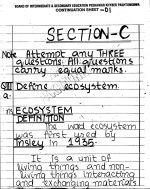 BOARD OF INTERMEDIATE & SECONDARY EDUCATION PESHAWAR KHYBER PAKHTUNKHWA
CONTINUATION SHEET No 01
SECTION-C
Note Attempt any THREE
questions. All questions
carry equal marks.
Define ecosystem
ECOSYSTEM
DEFINITION
The word ecosystem
was first used by
Tnsley in 1935.
It is a unit of
living things and non-
living things interacting
and exchanging materials